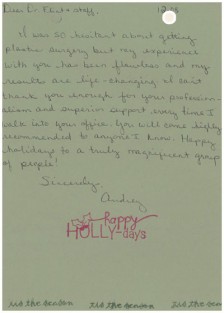 Dear Dr. & staff,
I was so hesitant about getting
plastic surgery but my experience
with you has been flawless and my
results are life-changing. I can't
thank you enough for your profession-
alism and superior support every time I
walk into your office. You will come highly
recommended to anyone I know. Happy
holidays to a truly magnificent group
of people!
Sincerely,
Audrey
Happy
HOLLY-days
tis the season tis the season tis the season